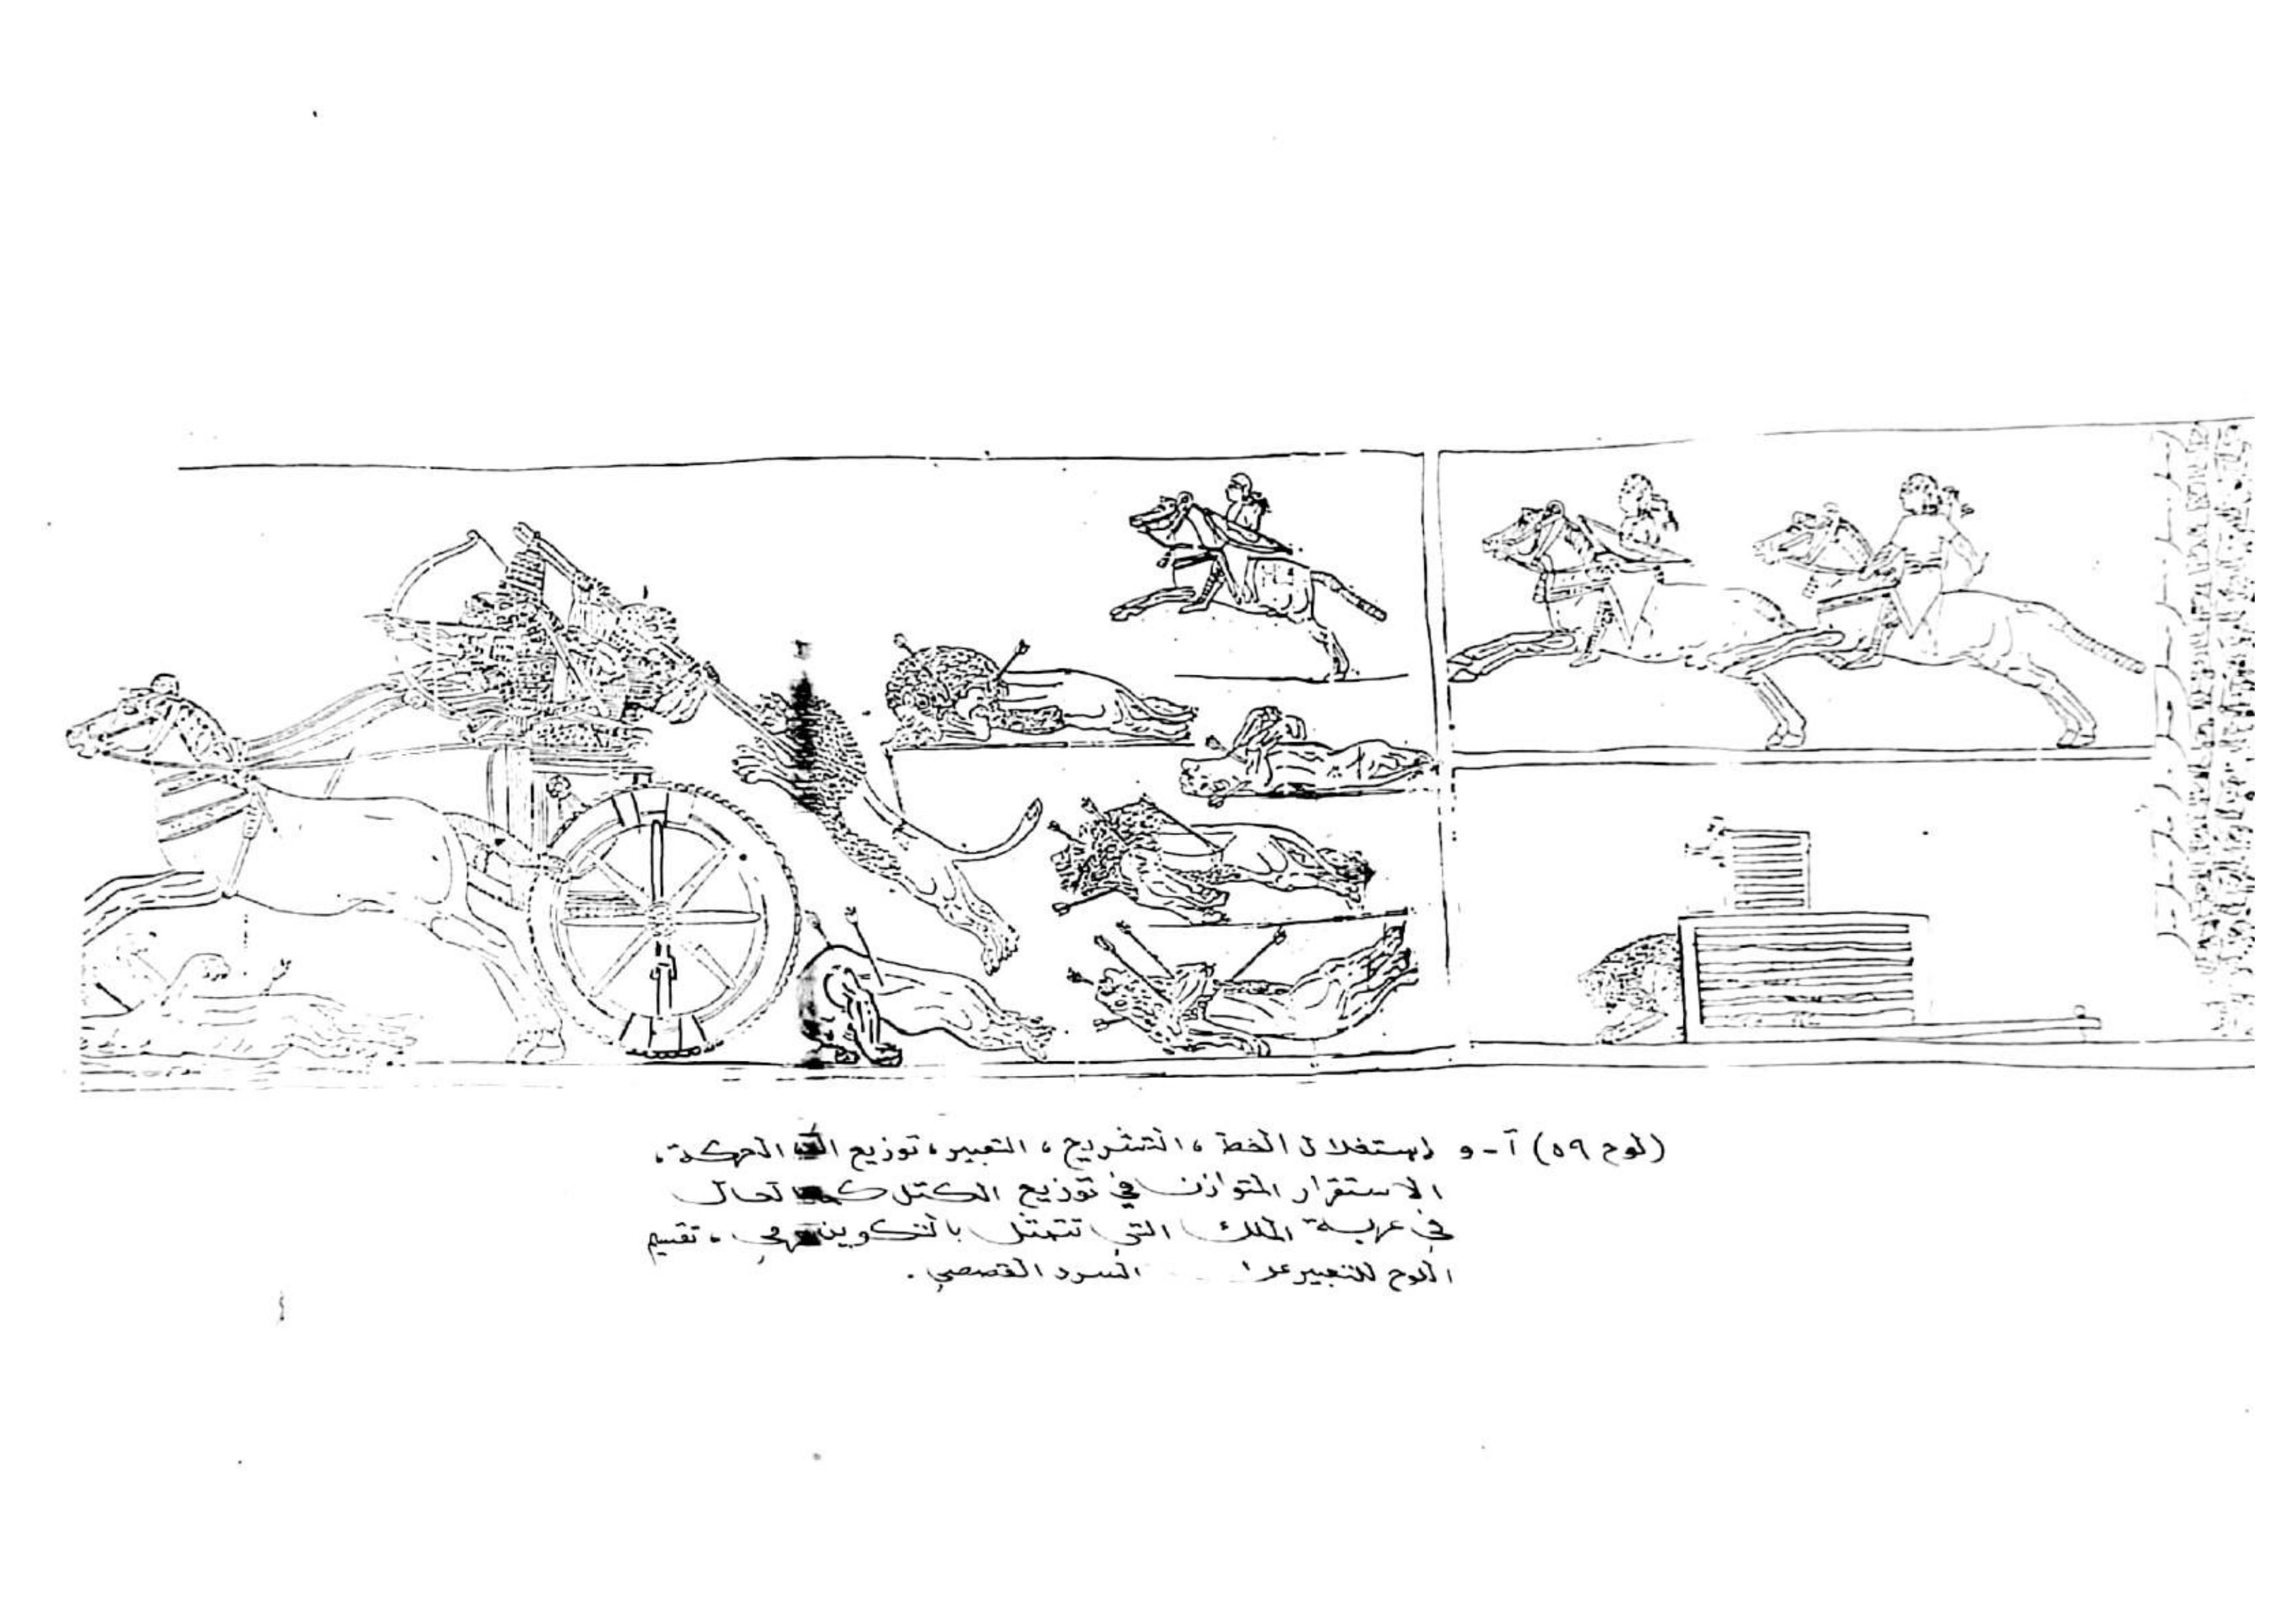 (لوح ٥٩) آ - و استغلال الخط ، التشريح ، التعبير ، توزيع الحركة ،
الاستقرار المتوازن في توزيع الكتل الحال
في عربة الملك التي تتمثل بالتكوين ، تقسيم
اللوح للتعبير السرد القصصي .